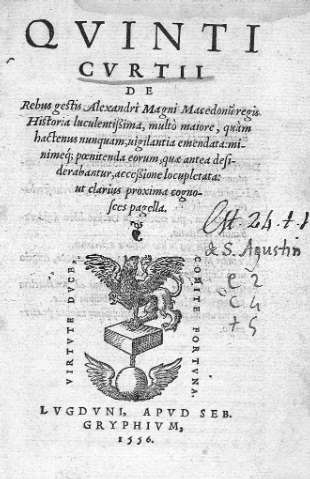 QVINTI
CVRTII
DE
Rebus gestis Alexandri Magni Macedonũ regis
Historia luculentissima, multò maiore, quàm
hactenus nunquam, uigilantia emendata: mi-
nimeq́; pœnitenda eorum, quæ antea desi-
derabantur, accessione locupletata:
ut clarius proxima cogno-
sces pagella.
Est. 24. t. 1
de S. Agustin
e 2
c 4
+ 5
VIRTVTE DVCE,
COMITE FORTVNA.
LVGDVNI, APVD SEB.
GRYPHIVM,
1556.